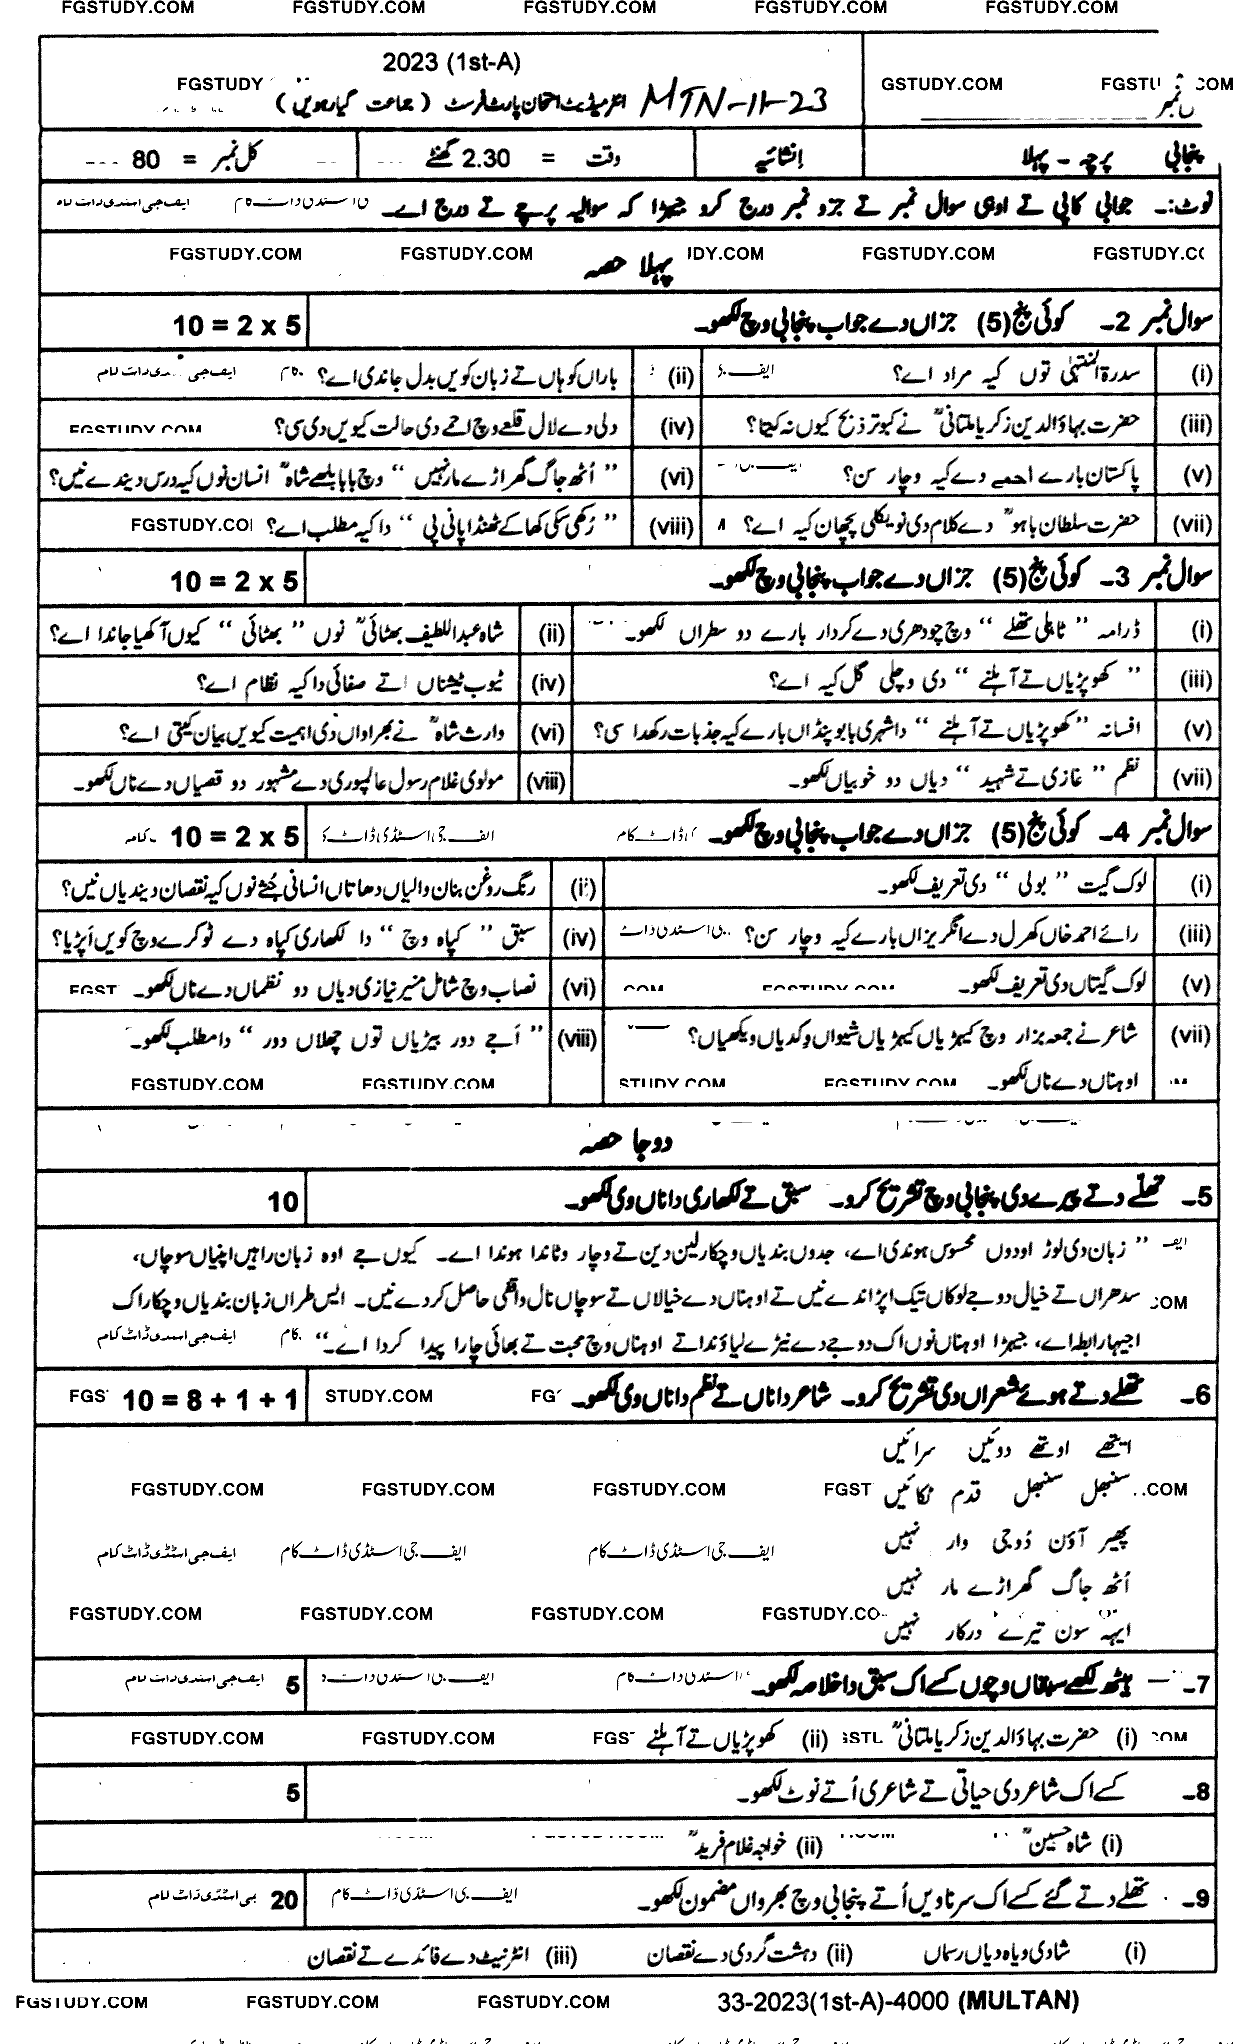 FGSTUDY.COM FGSTUDY.COM FGSTUDY.COM FGSTUDY.COM FGSTUDY.COM
2023 (1st-A)
FGSTUDY GSTUDY.COM
انٹرمیڈیٹ امتحان پارٹ فرسٹ (جماعت گیارہویں) MTN-11-23
پنجابی پرچہ - پہلا انشائیہ وقت = 2.30 گھنٹے کل نمبر = 80
نوٹ:۔ جوابی کاپی تے اوہی سوال نمبر تے جزو نمبر درج کرو جیہڑا کہ سوالیہ پرچے تے درج اے۔
FGSTUDY.COM FGSTUDY.COM FGSTUDY.COM
پہلا حصہ
سوال نمبر 2۔ کوئی پنج (5) جزاں دے جواب پنجابی وچ لکھو۔ 10 = 2 x 5
(i) سدرۃ المنتہیٰ توں کیہ مراد اے؟ (ii) باراں کوہاں تے زبان کویں بدل جاندی اے؟
(iii) حضرت بہاؤالدین زکریا ملتانیؒ نے کبوتر ذبح کیوں نہ کیتا؟ (iv) دلی دے لال قلعے وچ احمے دی حالت کیویں دی سی؟
(v) پاکستان بارے احمے دے کیہ وچار سن؟ (vi) "اُٹھ جاگ گھراڑے مار نہیں" وچ بابا بلھے شاہؒ انسان نوں کیہ درس دیندے نیں؟
(vii) حضرت سلطان باہوؒ دے کلام دی نویکلی پچھان کیہ اے؟ (viii) "رُکھی سکی کھا کے ٹھنڈا پانی پی" دا کیہ مطلب اے؟
سوال نمبر 3۔ کوئی پنج (5) جزاں دے جواب پنجابی وچ لکھو۔ 10 = 2 x 5
(i) ڈرامہ "ٹاہلی تھلے" وچ چودھری دے کردار بارے دو سطراں لکھو۔ (ii) شاہ عبداللطیف بھٹائیؒ نوں "بھٹائی" کیوں آکھیا جاندا اے؟
(iii) "کھوپڑیاں تے آہلنے" دی وچلی گل کیہ اے؟ (iv) ٹیوب ٹیشناں اتے صفائی دا کیہ نظام اے؟
(v) افسانہ "کھوپڑیاں تے آہلنے" دا شہری بابو پنڈاں بارے کیہ جذبات رکھدا سی؟ (vi) وارث شاہؒ نے بھراواں دی اہمیت کیویں بیان کیتی اے؟
(vii) نظم "غازی تے شہید" دیاں دو خوبیاں لکھو۔ (viii) مولوی غلام رسول عالمپوری دے مشہور دو قصیاں دے ناں لکھو۔
سوال نمبر 4۔ کوئی پنج (5) جزاں دے جواب پنجابی وچ لکھو۔ 10 = 2 x 5
(i) لوک گیت "بولی" دی تعریف لکھو۔ (ii) رنگ روغن بنان والیاں دھاتاں انسانی جُثے نوں کیہ نقصان دیندیاں نیں؟
(iii) رائے احمد خاں کھرل دے انگریزاں بارے کیہ وچار سن؟ (iv) سبق "کپاہ وچ" دا لکھاری کپاہ دے ٹوکرے وچ کویں اَپڑیا؟
(v) لوک گیتاں دی تعریف لکھو۔ (vi) نصاب وچ شامل منیر نیازی دیاں دو نظماں دے ناں لکھو۔
(vii) شاعر نے جمعہ بزار وچ کیہڑیاں کیہڑیاں شیواں وکدیاں ویکھیاں؟ (viii) "اَجے دور بیڑیاں توں چھلاں دور" دا مطلب لکھو۔
اوہناں دے ناں لکھو۔
FGSTUDY.COM FGSTUDY.COM STUDY.COM FGSTUDY.COM
دوجا حصہ
5۔ تھلے دتے پیرے دی پنجابی وچ تشریح کرو۔ سبق تے لکھاری دا ناں وی لکھو۔ 10
"زبان دی لوڑ اودوں محسوس ہوندی اے، جدوں بندیاں وچکار لین دین تے وچار وٹاندا ہوندا اے۔ کیوں جے اوہ زبان راہیں اپنیاں سوچاں،
سدھراں تے خیال دوجے لوکاں تیک اپڑاندے نیں تے اوہناں دے خیالاں تے سوچاں نال واقفی حاصل کردے نیں۔ ایس طراں زبان بندیاں وچکار اک
اجیہا رابطہ اے، جیہڑا اوہناں نوں اک دوجے دے نیڑے لیاؤندا تے اوہناں وچ محبت تے بھائی چارا پیدا کردا اے۔"
6۔ تھلے دتے ہوئے شعراں دی تشریح کرو۔ شاعر دا ناں تے نظم دا ناں وی لکھو۔ 10 = 8 + 1 + 1
ایتھے اوتھے دوئیں سرائیں
سنبھل سنبھل قدم ٹکائیں
پھیر آؤن دُوجی وار نہیں
اُٹھ جاگ گھراڑے مار نہیں
ایہہ سون تیرے درکار نہیں
FGSTUDY.COM FGSTUDY.COM FGSTUDY.COM
7۔ ہیٹھ لکھے سبقاں وچوں کسے اک سبق دا خلاصہ لکھو۔ 5
(i) حضرت بہاؤالدین زکریا ملتانیؒ (ii) کھوپڑیاں تے آہلنے
8۔ کسے اک شاعر دی حیاتی تے شاعری اُتے نوٹ لکھو۔ 5
(i) شاہ حسینؒ (ii) خواجہ غلام فریدؒ
9۔ تھلے دتے گئے کسے اک سرناویں اُتے پنجابی وچ بھرواں مضمون لکھو۔ 20
(i) شادی ویاہ دیاں رسماں (ii) دہشت گردی دے نقصان (iii) انٹرنیٹ دے فائدے تے نقصان
FGSTUDY.COM FGSTUDY.COM FGSTUDY.COM 33-2023(1st-A)-4000 (MULTAN)